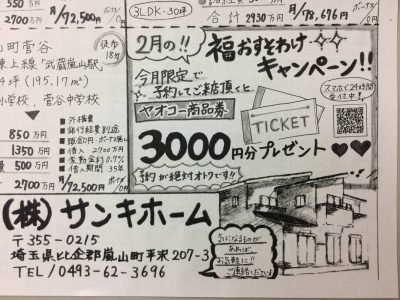 550万円
月/72,500円 ボーナス/0円
3LDK・30坪
合計 2930万円 月/78,676円 ボーナス/0円
町菅谷
徒歩18分
東上線「武蔵嵐山駅」
4坪 (195.17㎡)
小学校、菅谷中学校
850万円
1350万円
500万円
2700万円
■外構費
■銀行経費別途
■頭金0円・ボーナス無し
■借入 2700万円
■変動金利0.7%
■借入期間 35年
月/72,500円 ボーナス/0円
2月の!!
福おすそわけ
キャンペーン!!
今月限定で
予約してご来店頂くと
スマホで24時間
受付中!
ヤオコー商品券
TICKET
3000円分プレゼント
予約が絶対オトクです!!
(株)サンキホーム
〒355-0215
埼玉県比企郡嵐山町平沢207-3
TEL/0493-62-3696
気になるものが
あれば
お気軽に!!
ご連絡くださいませ